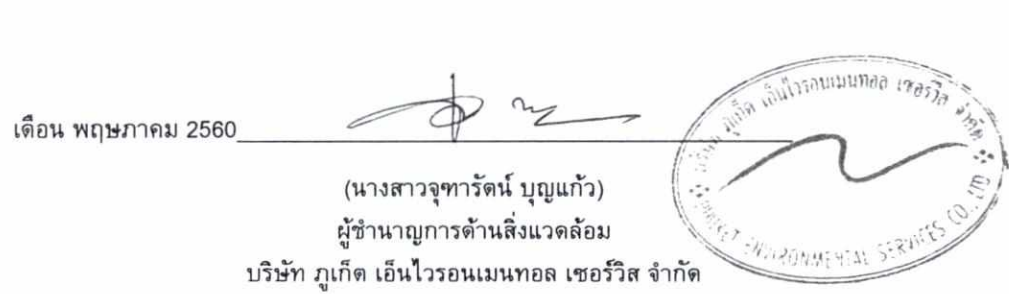 เดือน พฤษภาคม 2560
(นางสาวจุฑารัตน์ บุญแก้ว)
ผู้ชำนาญการด้านสิ่งแวดล้อม
บริษัท ภูเก็ต เอ็นไวรอนเมนทอล เซอร์วิส จำกัด
บริษัท ภูเก็ต เอ็นไวรอนเมนทอล เซอร์วิส จำกัด
PHUKET ENVIRONMENTAL SERVICES CO., LTD